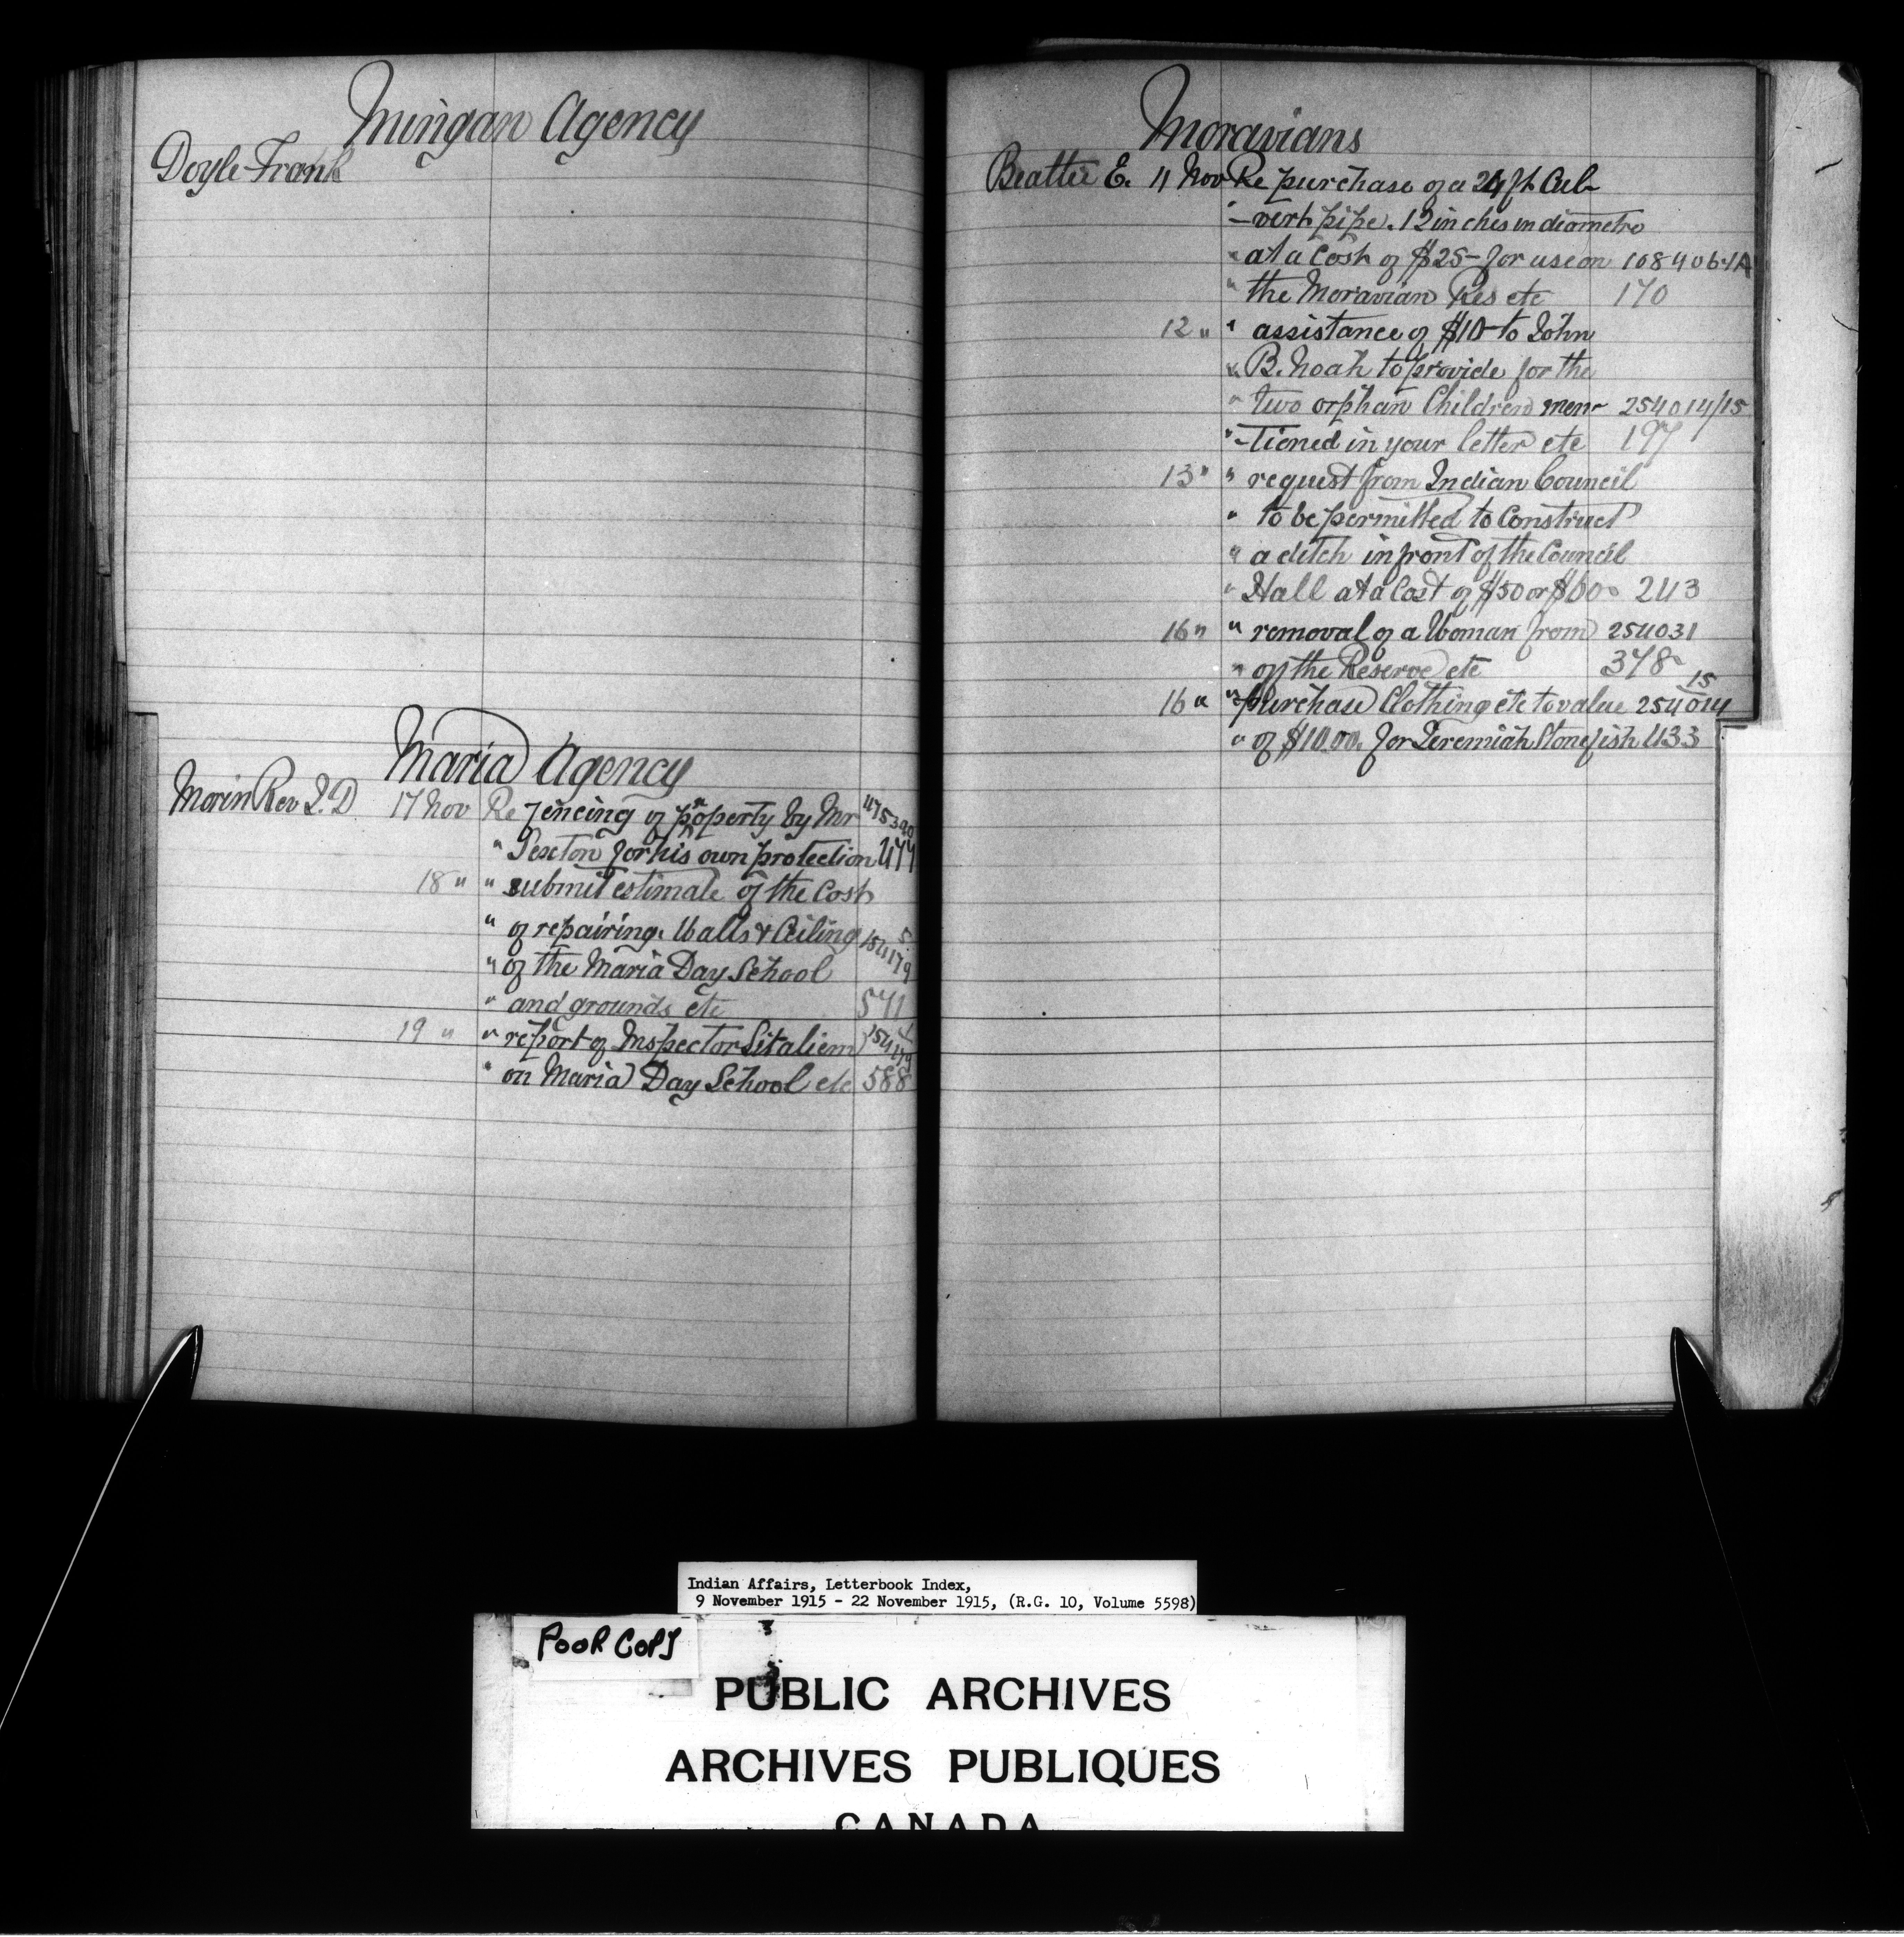 Mingan Agency
Doyle Frank
Maria Agency
Morin Rev J. D. 17 Nov Re fencing of property by Mr 475390
" Sexton for his own protection 477
18 " " submit estimate of the cost
" of repairing. Walls & Ceiling 154179 5
" of the Maria Day School
" and grounds etc 571
19 " " report of Inspector Sitaliem 154179 1
" on Maria Day School etc 588
Moravians
Beattie E. 11 Nov Re purchase of a 24 ft Cul-
" -vert pipe. 12 inches in diametre
" at a Cost of $25- for use on 108406-1A
" the Moravian Res etc 170
12 " " assistance of $10- to John
" B. Noah to provide for the
" two orphan Children men- 254014/15
" -tioned in your letter etc 197
13 " " request from Indian Council
" to be permitted to Construct
" a ditch in front of the Council
" Hall at a Cost of $50 or $60. 243
16 " " removal of a Woman from 254031
" off the Reserve etc 378
16 " " purchase Clothing etc to value 254014 15
" of $10.00. for Jeremiah Stonefish 433
Indian Affairs, Letterbook Index,
9 November 1915 - 22 November 1915, (R.G. 10, Volume 5598)
POOR COPY
PUBLIC ARCHIVES
ARCHIVES PUBLIQUES
CANADA